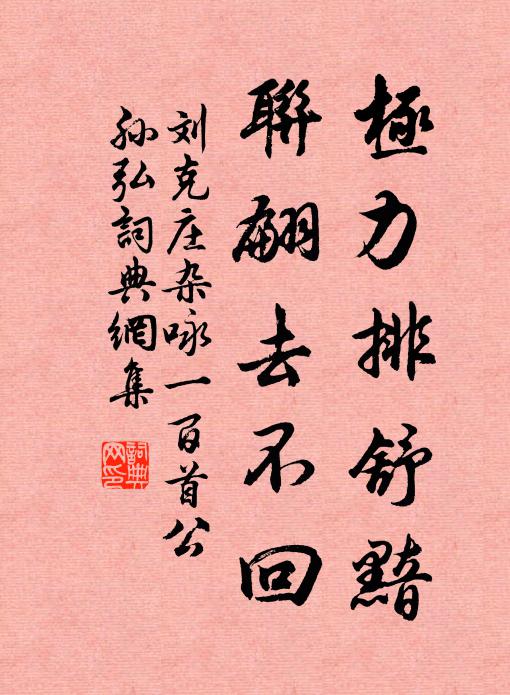 極力排舒黯
聯翩去不回
刘克庄杂咏一百首公
孙弘詞典網集
詞典
网印